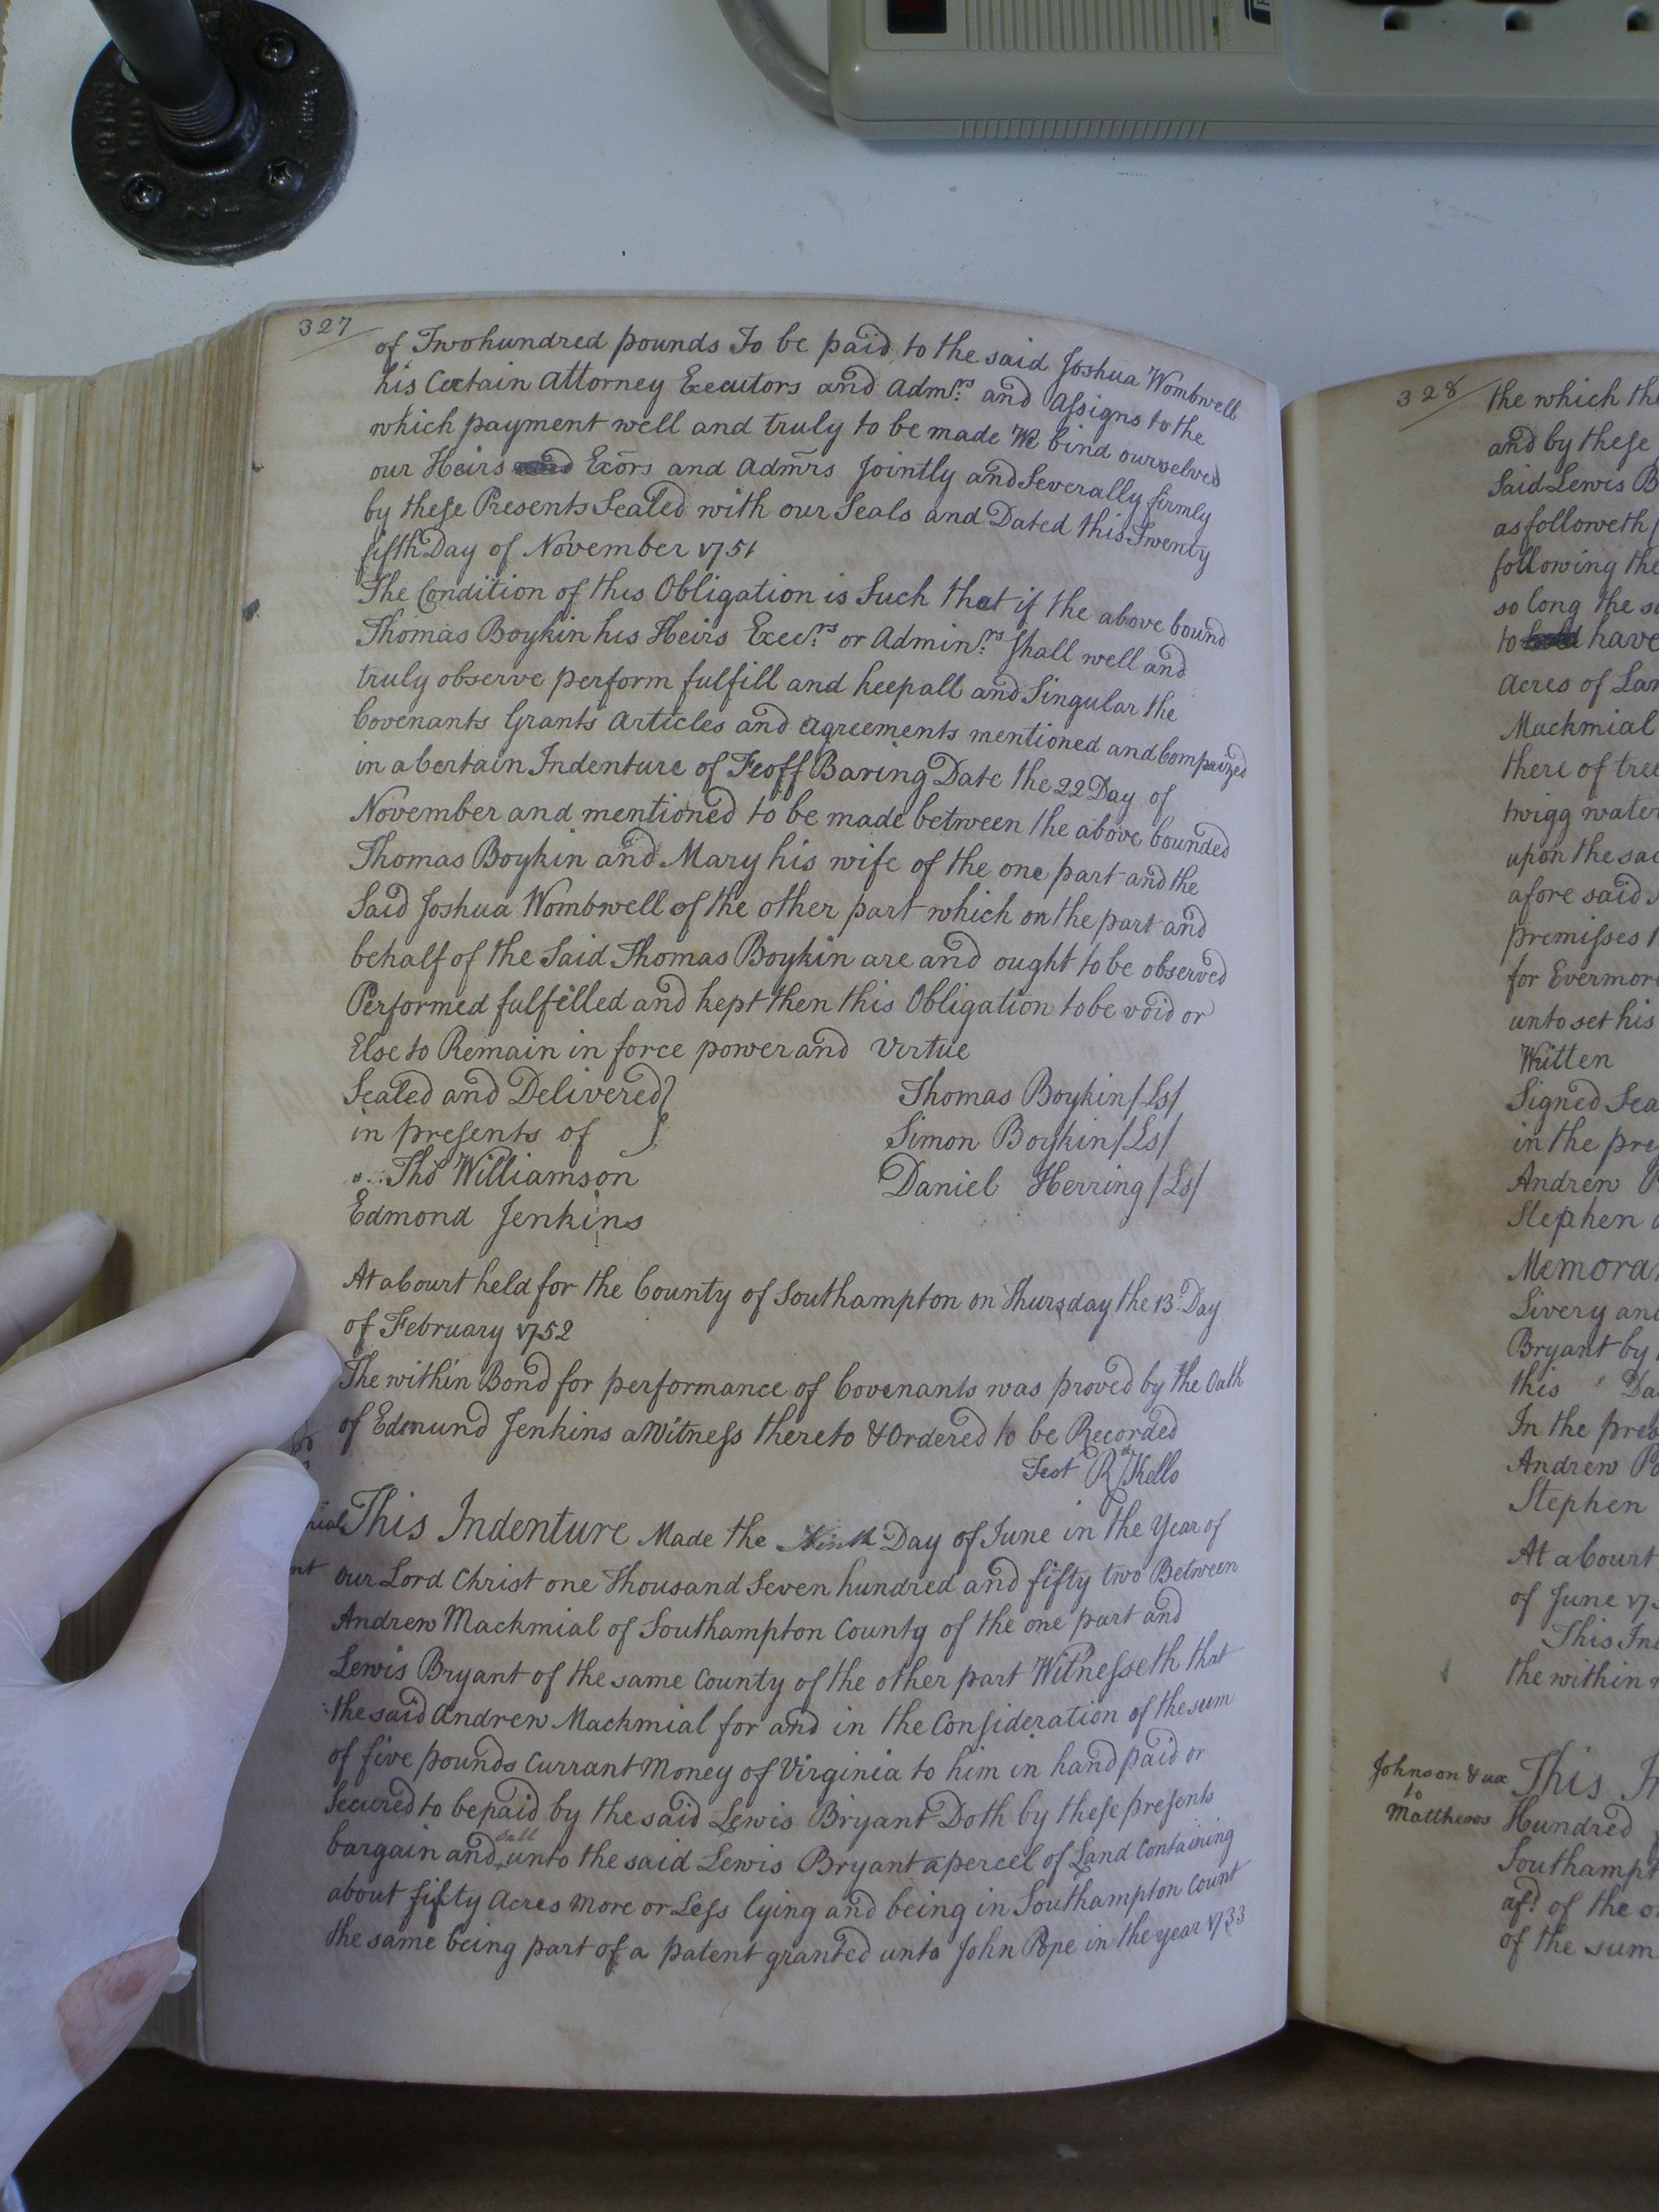 327
of Twohundred pounds To be paid to the said Joshua Wombwell
his Certain Attorney Executors and Admrs and Assigns to the
which payment well and truly to be made We bind ourselves
our Heirs Exors and Admrs Jointly and Severally firmly
by these Presents Sealed with our Seals and Dated this Twenty
fifth Day of November 1751
The Condition of this Obligation is Such that if the above bound
Thomas Boykin his Heirs Execrs or Adminrs Shall well and
truly observe perform fulfill and keep all and Singular the
Covenants Grants Articles and agreements mentioned and Comprized
in a Certain Indenture of Feoff Baring Date the 22 Day of
November and mentioned to be made between the above bounded
Thomas Boykin and Mary his wife of the one part and the
Said Joshua Wombwell of the other part which on the part and
behalf of the Said Thomas Boykin are and ought to be observed
Performed fulfilled and kept then this Obligation to be void or
Else to Remain in force power and Virtue
Sealed and Delivered
in presents of
Tho Williamson
Edmond Jenkins
Thomas Boykin /Ls/
Simon Boykin /Ls/
Daniel Herring /Ls/
At a Court held for the County of Southampton on Thursday the 13 Day
of February 1752
The within Bond for performance of Covenants was proved by the Oath
of Edmund Jenkins a Witness thereto & Ordered to be Recorded
Test Rd Kello
This Indenture Made the Ninth Day of June in the Year of
our Lord Christ one Thousand Seven hundred and fifty two Between
Andrew Mackmial of Southampton County of the one part and
Lewis Bryant of the same County of the other part Witnesseth that
the said Andrew Mackmial for and in the Consideration of the sum
of five pounds Currant Money of Virginia to him in hand paid or
Secured to be paid by the said Lewis Bryant Doth by these presents
bargain and sell unto the said Lewis Bryant a percel of Land Containing
about fifty Acres more or Less lying and being in Southampton Count
the same being part of a patent granted unto John Pope in the year 1733
328
the which
and by these
Said Lewis
as followeth
following the
so long the
to have
Acres of
Mackmial
there of
twigg water
upon the
afore said
premisses
for Evermore
unto set his
Written
Signed
in the
Andrew
Stephen
Livery and
Bryant by
this
In the
Andrew
Stephen
At a Court
of June
This
the within
Johnson & ux
to
Matthews
This
Hundred
of the
of the sum